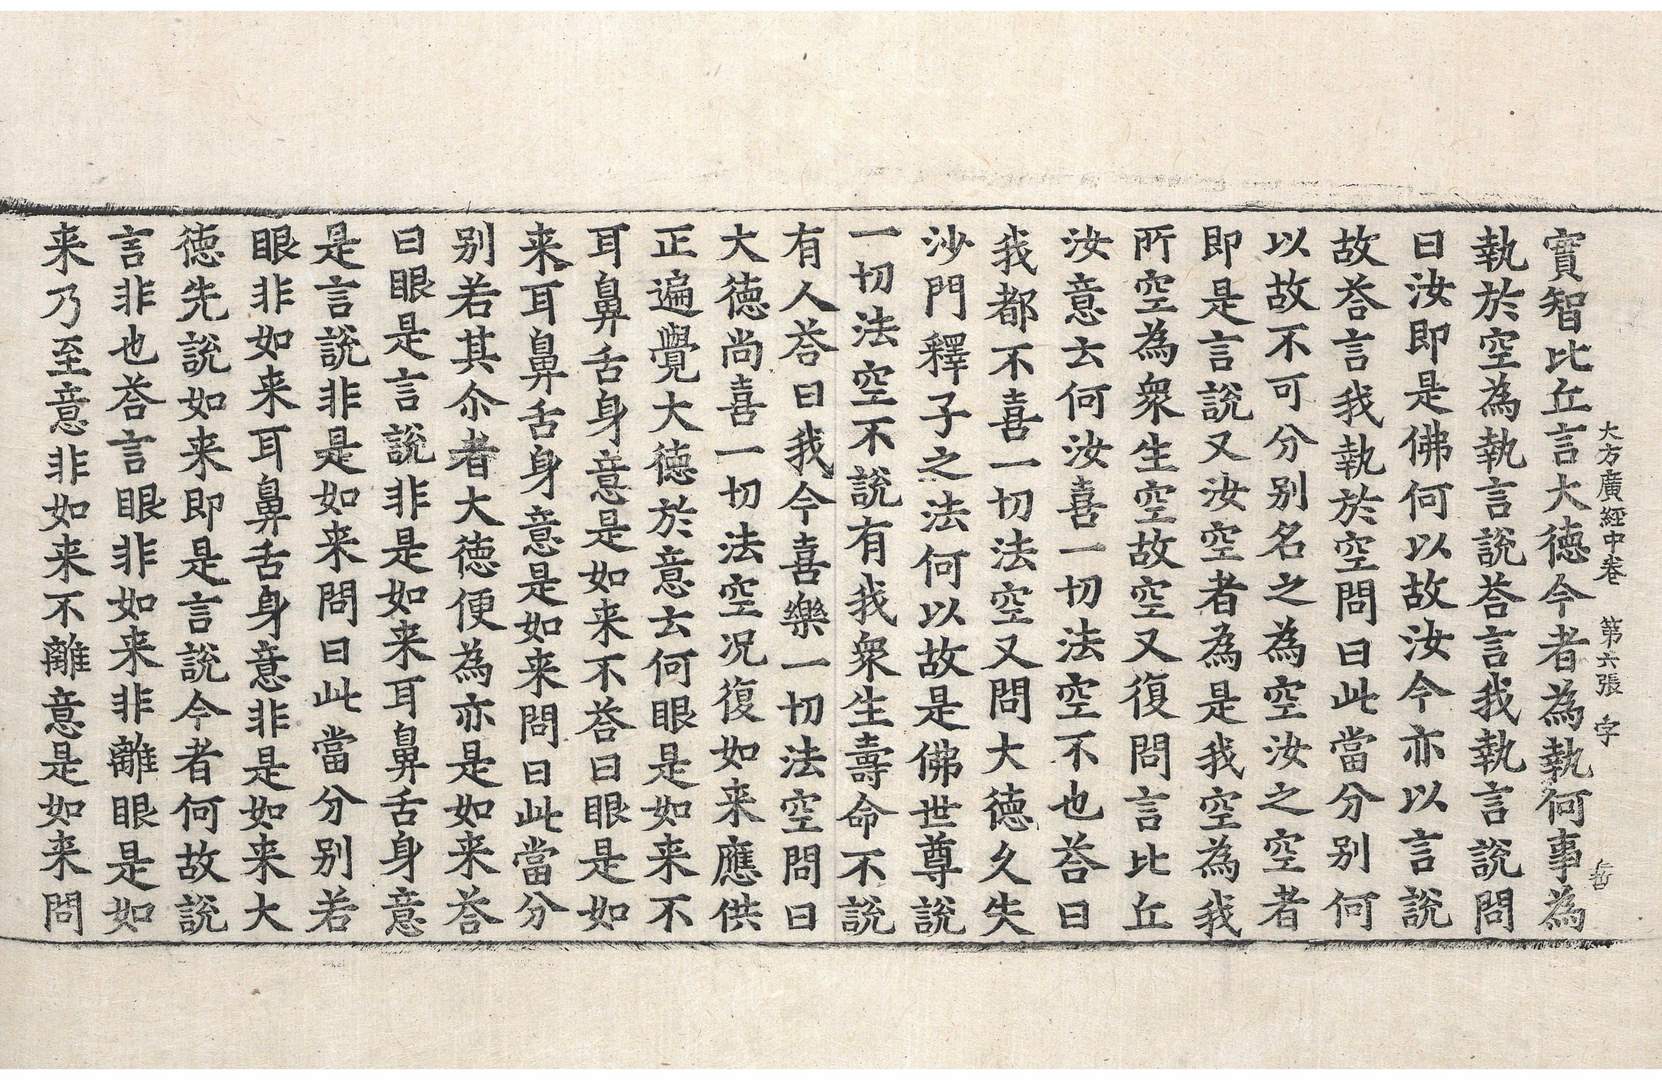 大方廣經中卷　第六張　字
實智比丘言大德今者為執何事為
執於空為執言說荅言我執言說問
曰汝即是佛何以故汝今亦以言說
故荅言我執於空問曰此當分別何
以故不可分別名之為空汝之空者
即是言說又汝空者為是我空為我
所空為衆生空故空又復問言比丘
汝意云何汝喜一切法空不也荅曰
我都不喜一切法空又問大德久失
沙門釋子之法何以故是佛世尊說
一切法空不說有我衆生壽命不說
有人荅曰我今喜樂一切法空問曰
大德尚喜一切法空况復如来應供
正遍覺大德於意云何眼是如来不
耳鼻舌身意是如来不荅曰眼是如
来耳鼻舌身意是如来問曰此當分
別若其尒者大德便為亦是如来荅
曰眼是言說非是如来耳鼻舌身意
是言說非是如来問曰此當分別若
眼非如来耳鼻舌身意非是如来大
德先說如来即是言說今者何故說
言非也荅言眼非如来非離眼是如
来乃至意非如来不離意是如来問